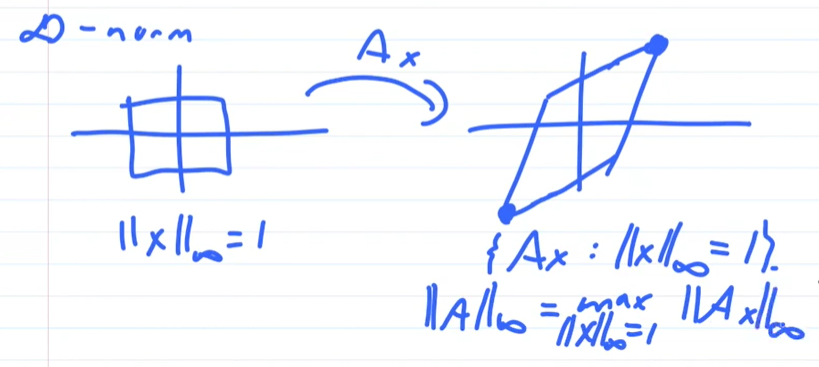 ∞-norm
Ax
||x||∞ = 1
{Ax : ||x||∞ = 1}.
||A||∞ = max ||Ax||∞
||x||∞ = 1